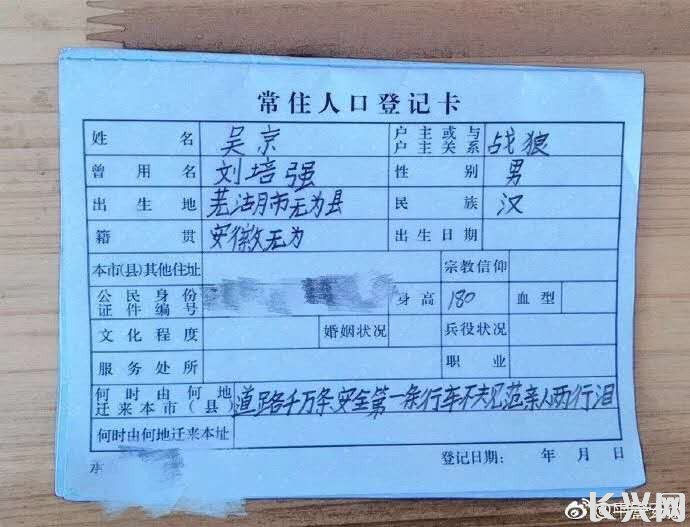 常住人口登记卡
姓名 吴京 户主或与户主关系 战狼
曾用名 刘培强 性别 男
出生地 芜湖市无为县 民族 汉
籍贯 安徽无为 出生日期
本市(县)其他住址 宗教信仰
公民身份证件编号 身高 180 血型
文化程度 婚姻状况 兵役状况
服务处所 职业
何时由何地迁来本市(县) 道路千万条,安全第一条行车不夫见范亲人两行泪
何时由何地迁来本址
登记日期: 年 月 日
长兴网